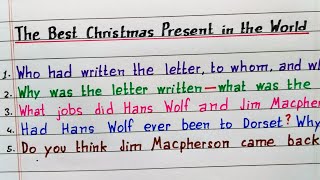 The Best Christmas Present in the World
1. Who had written the letter, to whom, and w
2. Why was the letter written—what was the
3. What jobs did Hans Wolf and Jim Macpher
4. Had Hans Wolf ever been to Dorset? Why
5. Do you think Jim Macpherson came back